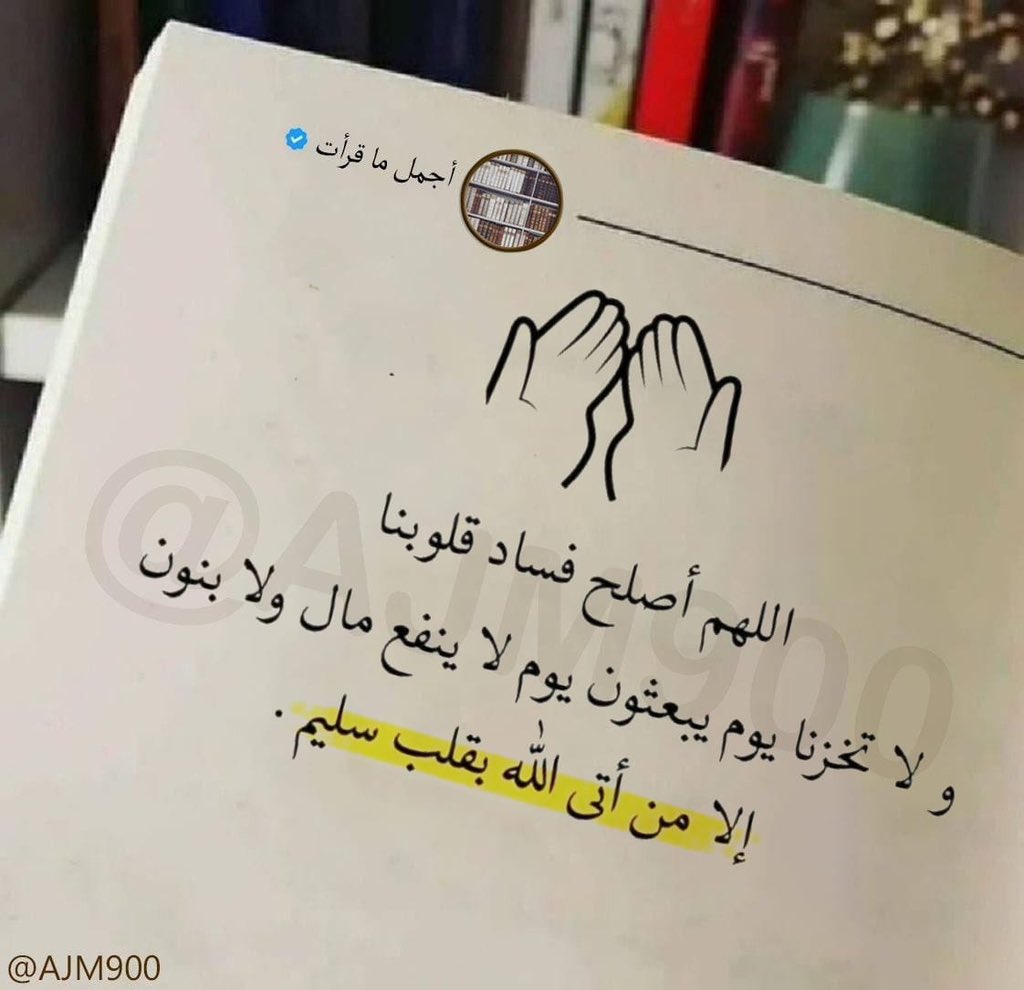 أجمل ما قرأت
اللهم أصلح فساد قلوبنا
و لا تخزنا يوم يبعثون يوم لا ينفع مال ولا بنون
إلا من أتى الله بقلب سليم .
@AJM900
@AJM900